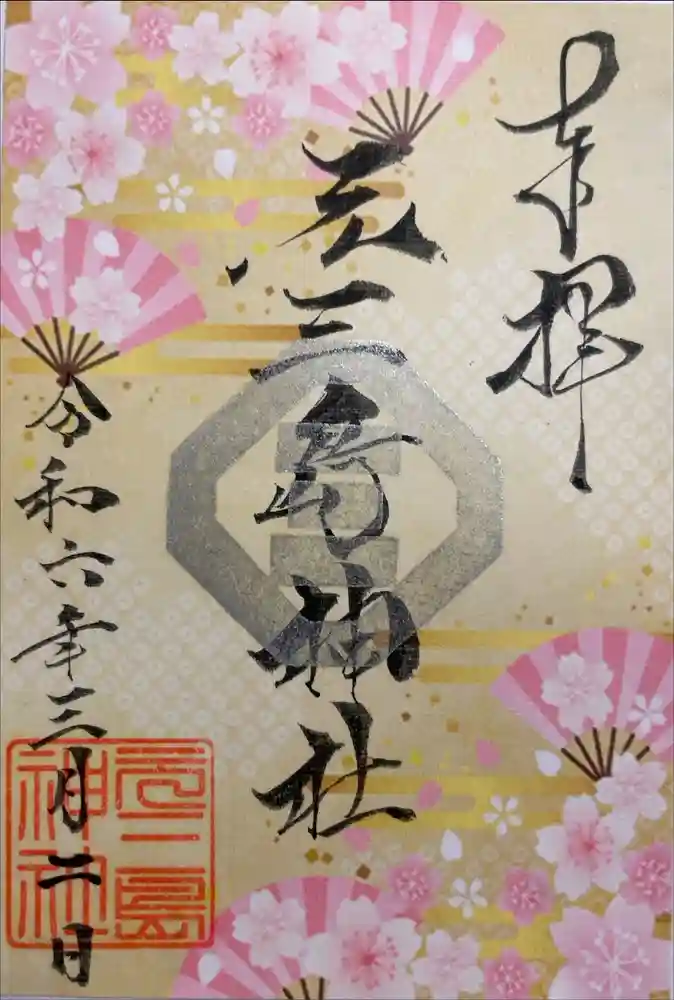 奉拝
元三島神社
令和六年三月二日
元三島
神社